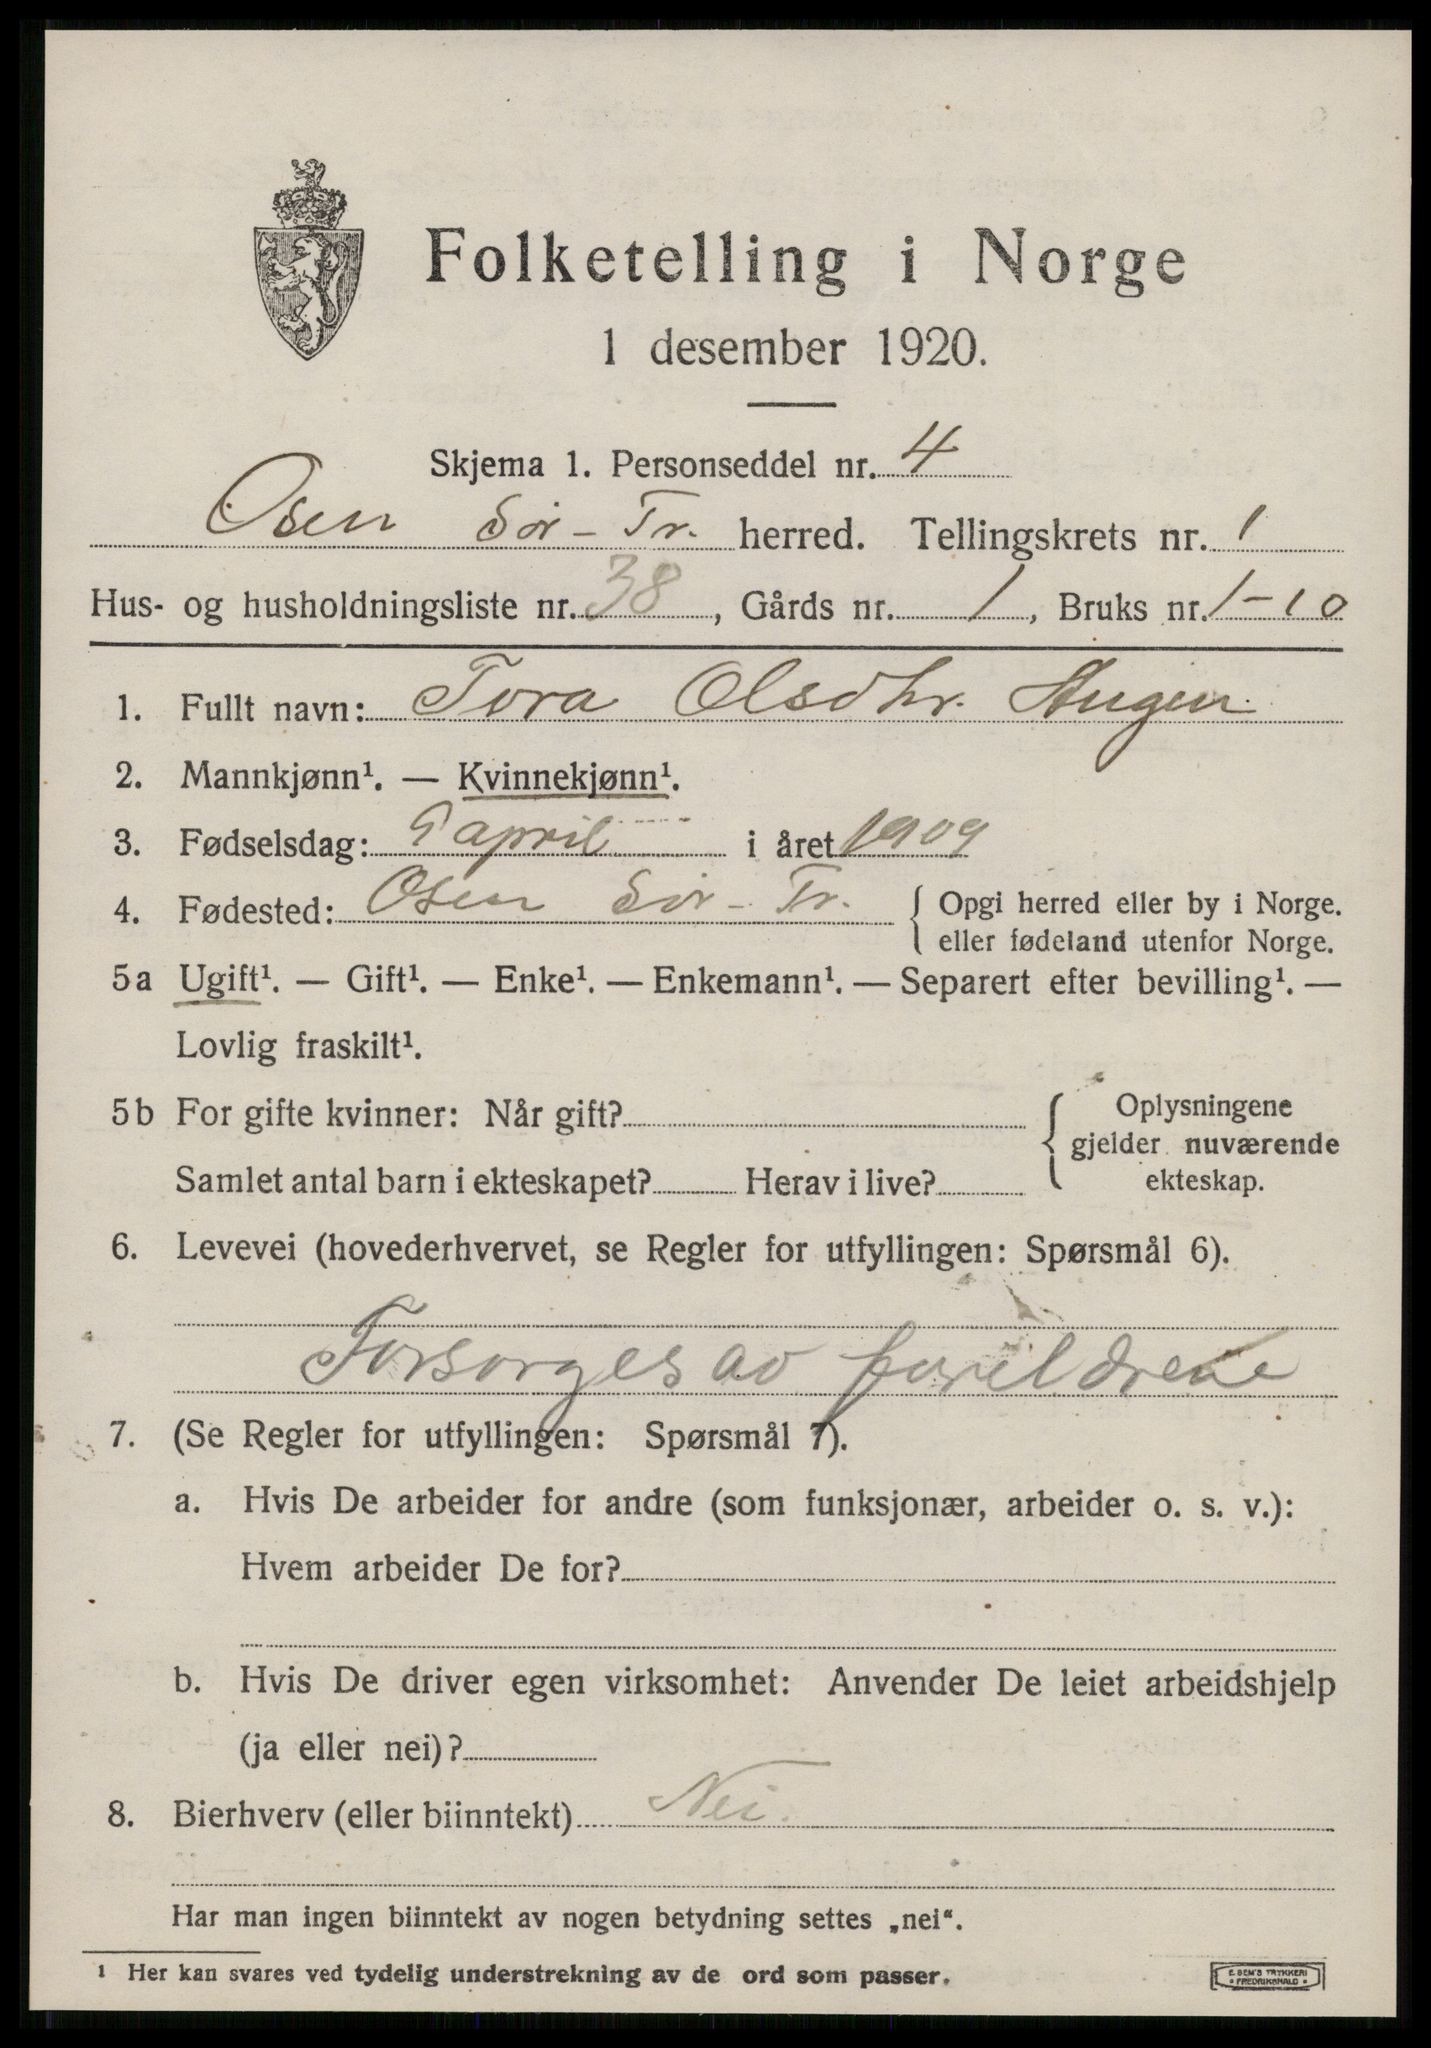 Folketelling i Norge
1 desember 1920.
Skjema 1. Personseddel nr. 4
Osen Sör-Tr. herred. Tellingskrets nr. 1
Hus- og husholdningsliste nr. 38, Gårds nr. 1, Bruks nr. 1-10
1. Fullt navn: Tora Olsdtr. Hugen
2. Mannkjønn¹. — Kvinnekjønn¹.
3. Fødselsdag: 9 april i året 1909
4. Fødested: Osen Sör-Tr. { Opgi herred eller by i Norge.
eller fødeland utenfor Norge.
5a Ugift¹. — Gift¹. — Enke¹. — Enkemann¹. — Separert efter bevilling¹. —
Lovlig fraskilt¹.
5b For gifte kvinner: Når gift? { Oplysningene
gjelder nuværende
Samlet antal barn i ekteskapet? Herav i live? ekteskap.
6. Levevei (hovederhvervet, se Regler for utfyllingen: Spørsmål 6).
Forsorges av foreldrene
7. (Se Regler for utfyllingen: Spørsmål 7).
a. Hvis De arbeider for andre (som funksjonær, arbeider o. s. v.):
Hvem arbeider De for?
b. Hvis De driver egen virksomhet: Anvender De leiet arbeidshjelp
(ja eller nei)?
8. Bierhverv (eller biinntekt) Nei.
Har man ingen biinntekt av nogen betydning settes „nei“.
¹ Her kan svares ved tydelig understrekning av de ord som passer.
E. SEM'S TRYKKERI
FREDRIKSHALD